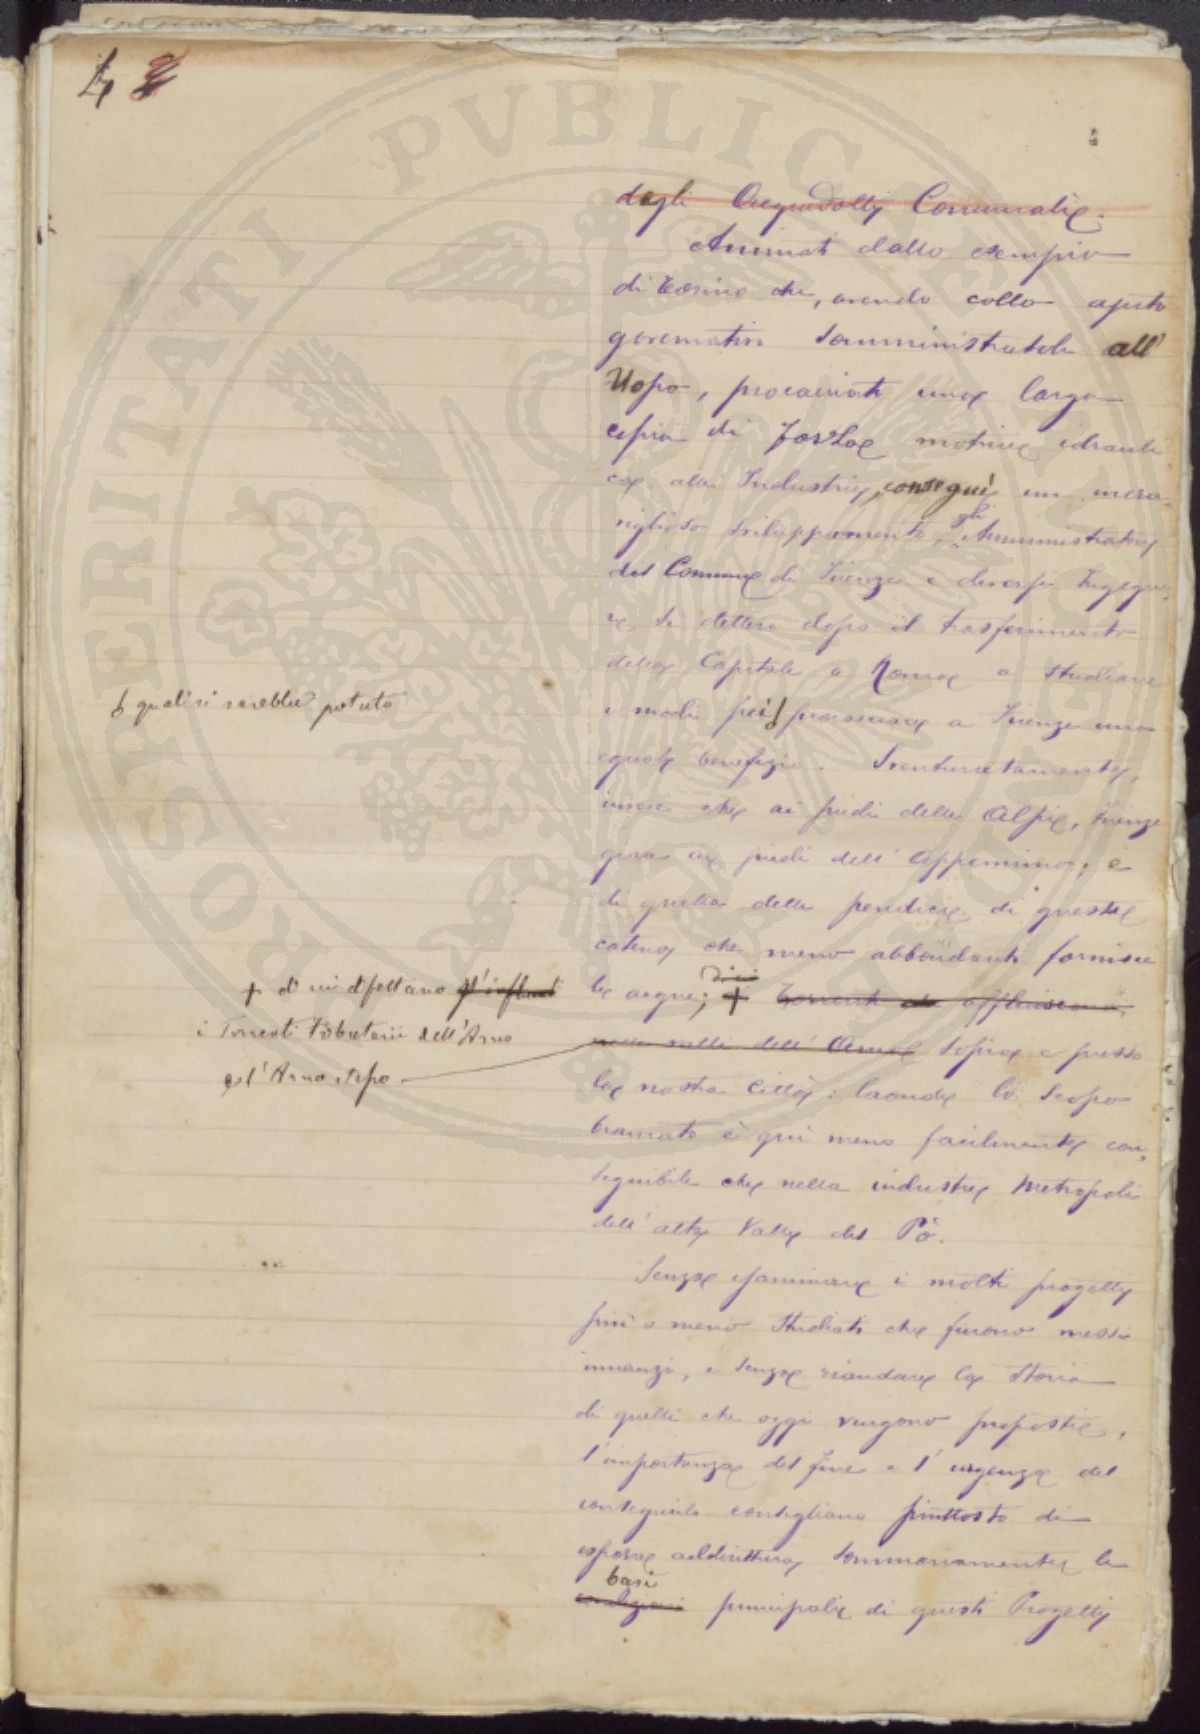 4 2
degli Acquedotti Comunali.
Animati dallo esempio
di Torino che, avendo collo ajuto
governativo somministratole all'
Uopo, procacciato una larga
copia di forza motrice idrauli-
ca alle Industrie, conseguì un mera-
viglioso sviluppamento, gli Amministratori
del Comune di Firenze e diversi Ingegne-
ri si dettero dopo il trasferimento
della Capitale a Roma a studiare
i modi pei procurare a Firenze uno
eguale benefizio. Sventuratamente,
invece che ai piedi delle Alpi, Firenze
giace ai piedi dell' Appennino; e
di quella delle pendici di questa
catena che meno abbondanti fornisce
le acque; + Torrenti che affluiscono
nella valle dell' Arno sopra e presso
la nostra Città: laonde lo scopo
bramato è quì meno facilmente con-
seguibile che nella industre Metropoli
dell' alta Valle del Pò.
Senza esaminare i molti progetti
più o meno studiati che furono messi
innanzi, e senza riandare la storia
di quelli che oggi vengono proposti,
l'importanza del fine e l' urgenza del
conseguirlo consigliano piuttosto di
esporre addirittura, sommariamente le
basi
condizioni principali di questi Progetti
quali si sarebbe potuto
+ di cui difettano gl'influenti
i Torrenti Tributarii dell'Arno
e l'Arno stesso
PROSPERITATI PVBLICAE